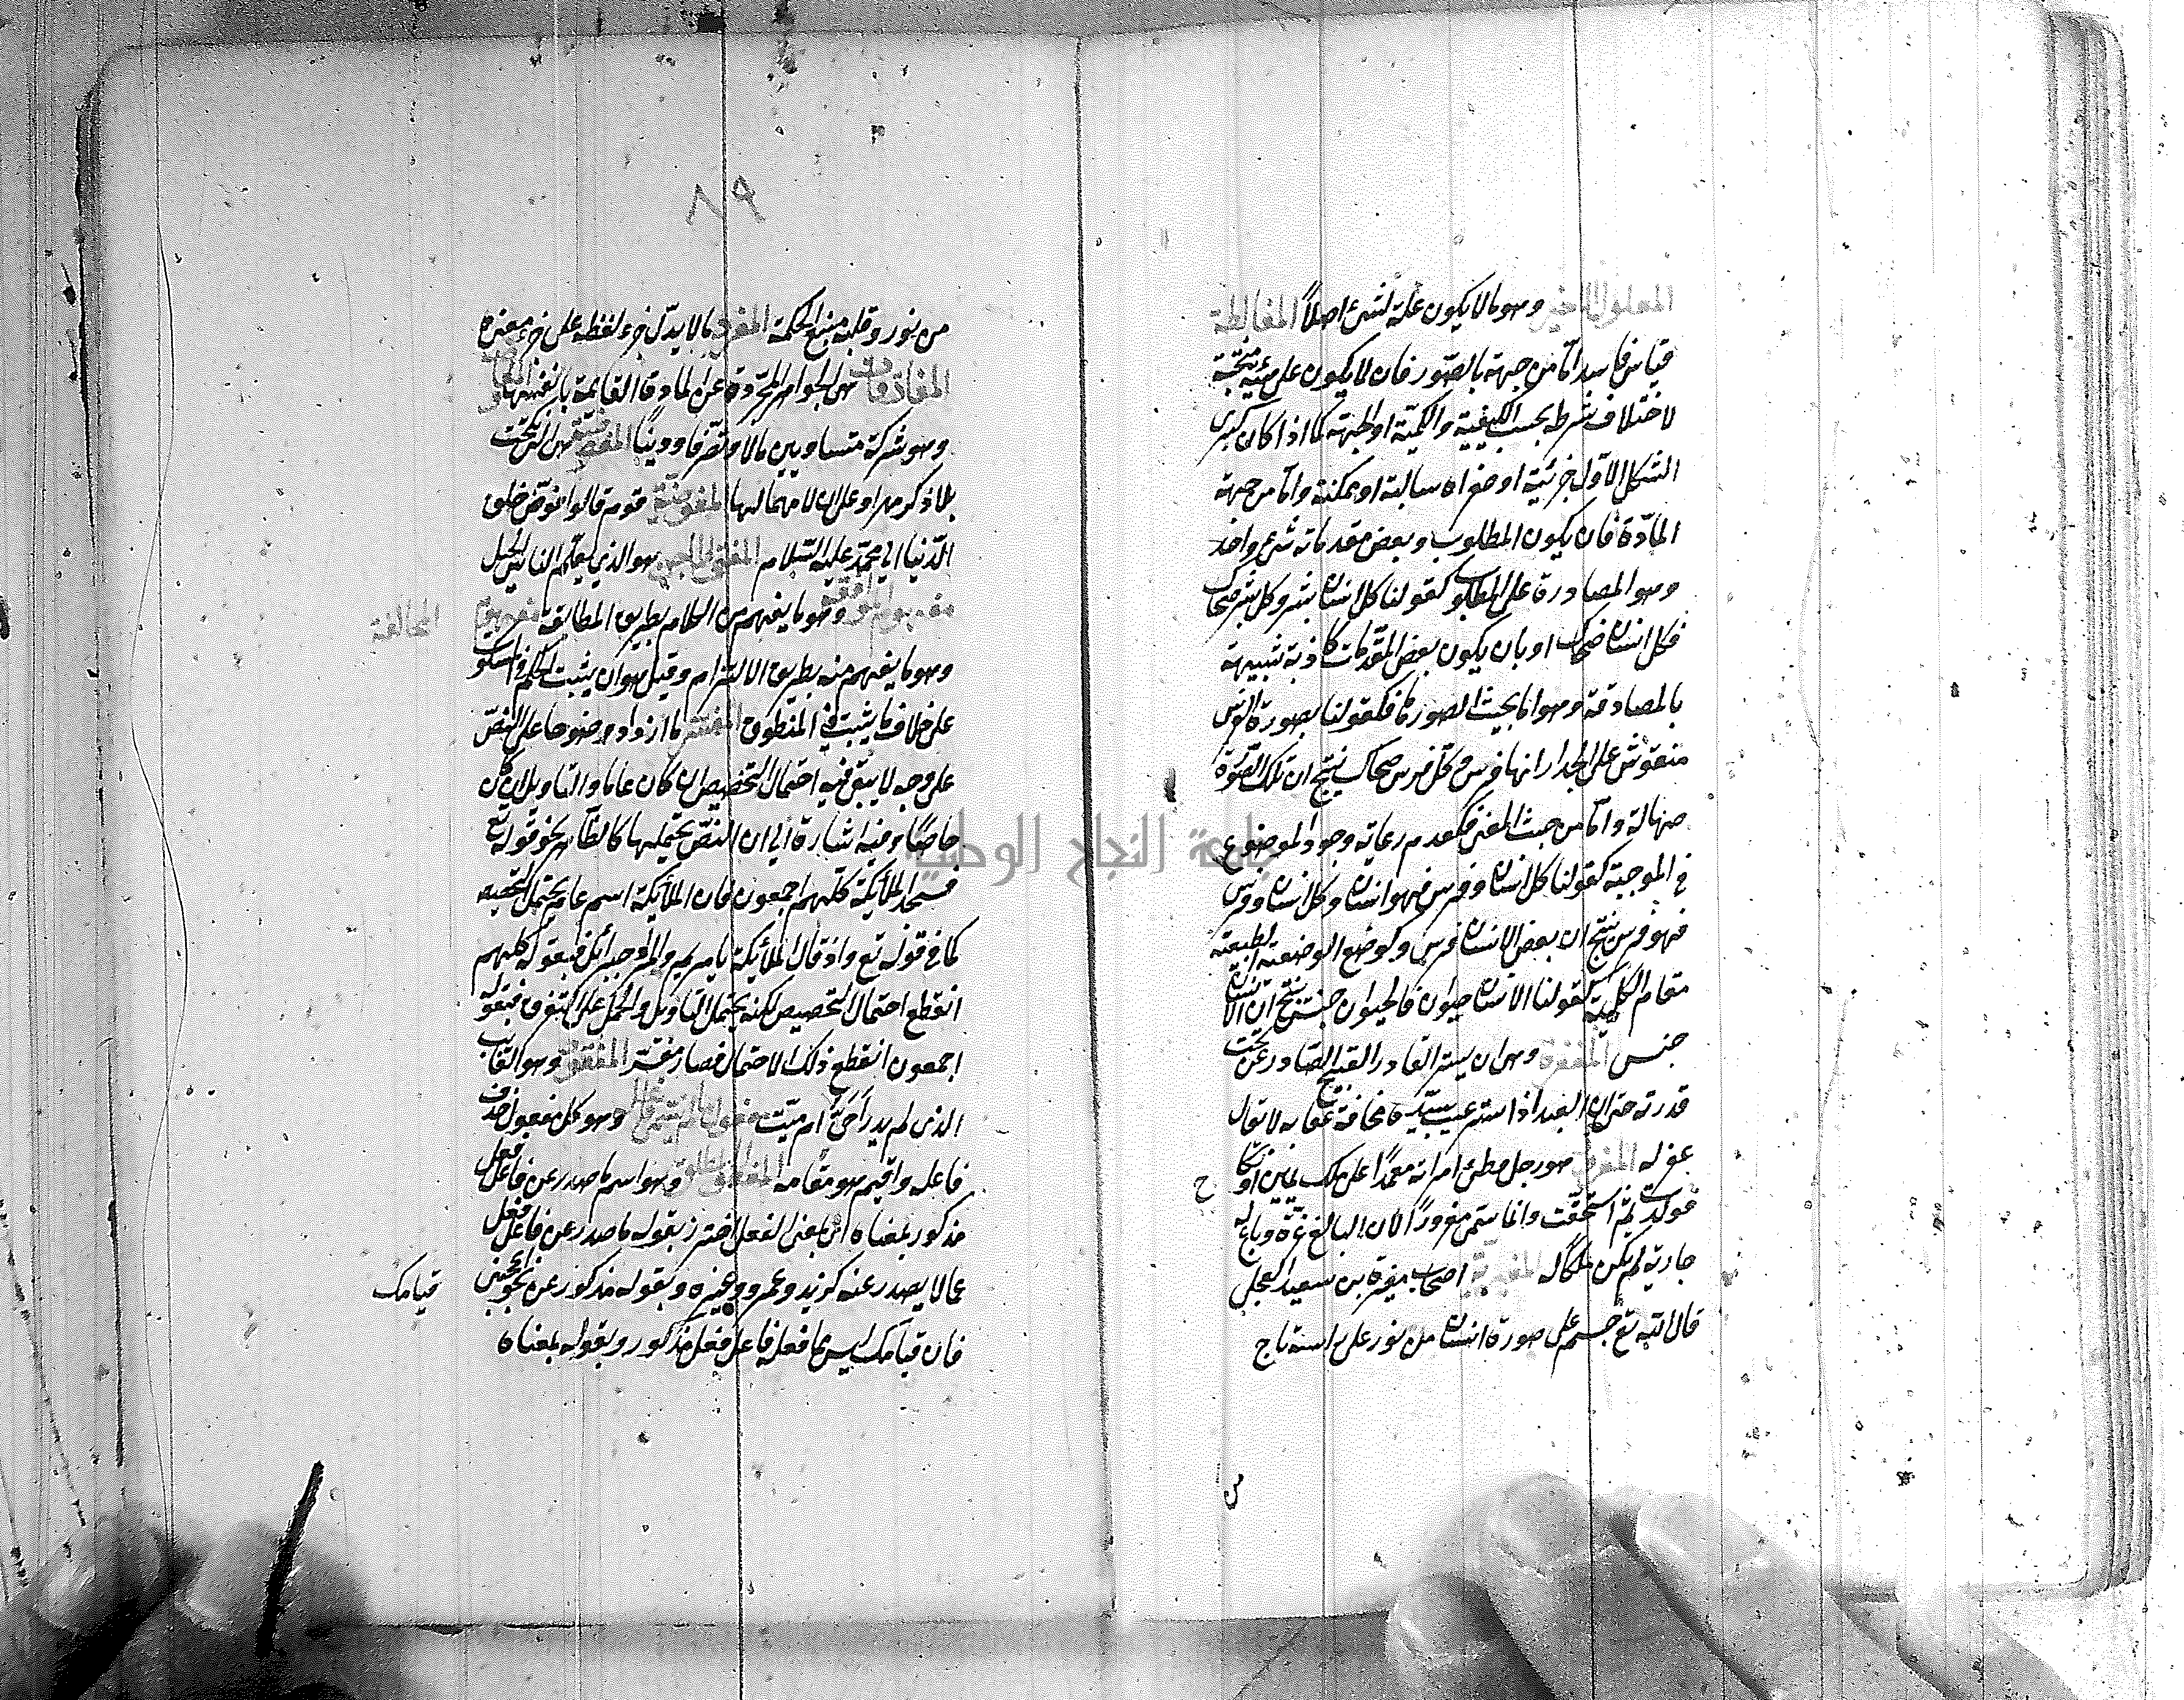 المعلول الاخير وهو ما لا يكون علة لشئ اصلاً المغالطة
قياس فاسد اما من جهة بالصور فان لا يكون على هيئة منتجة
لاختلاف شرط بحسب الكيفية والكمية او الجهة كما اذا كان كبرى
الشكل الاول جزئية او صغراه سالبة او ممكنة واما من جهة
المادة فان يكون المطلوب وبعض مقدماته شئ واحد
وهو المصادرة على المطلوب كقولنا كل انسان بشر وكل بشر ضحاك
فكل انسان ضحاك او بان يكون بعض المقدمات كاذبة شبيهة
بالصادقة وهو اما بحيث الصورة فكقولنا بصورة الفرس
منقوش على الجدار انها فرس وكل فرس صهاك ينتج ان تلك الصورة
صهالة واما من حيث المعنى فكعدم رعاية وجود الموضوع
في الموجبة كقولنا كل انسان وفرس فهو انسان وكل انسان وفرس
فهو فرس ينتج ان بعض الانسان فرس وكوضع الوضعية الطبيعية
مقام الكلية كقولنا الانسان حيوان فالحيوان جنس ينتج ان الانسان
جنس المغفرة وهي ان يستر القادر القبيح الصادر عن تحت
قدرته حتى ان العبد اذا ستر عيب سيده مخافة عقابه لا يقال
غفر له المغرور هو رجل وطئ امراة معتمدًا على ملك يمين او نكاح
فولدت ثم استحقت وانما سمي مغرورًا لان البالغ غره وباع له
جارية لم يكن ملكًا له المغيرية اصحاب مغيرة بن سعيد العجلي
قال الله تع جسم على صورة انسان من نور على راسه تاج
من
٨٩
من نور وقلبه منبع الحكمة المفرد ما لا يدل جزء لفظه على جزء معناه
المفارقات هي الجواهر المجردة عن المادة القائمة بانفسها المفاوضة
وهو شركة متساويين مالا وتصرفا ودينًا المفوضة هي التي نكحت
بلا ذكر مهر او على ان لا مهر لها المفوضية قوم قالوا فوض خلق
الدنيا الى محمد عليه السلام المفتي الماجن هو الذي يعلم الناس الحيل
مفهوم الموافقة وهو ما يفهم من الكلام بطريق المطابقة مفهوم المخالفة
وهو ما يفهم منه بطريق الالتزام وقيل هو ان يثبت الحكم في المسكوت
على خلاف ما يثبت في المنطوق المفسر ما ازداد وضوحا على النص
على وجه لا يبقى فيه احتمال التخصيص ان كان عاما والتاويل ان كان
خاصًا وفيه اشارة الى ان النص يحتملها كالظاهر نحو قوله تع
فسجد الملائكة كلهم اجمعون فان الملائكة اسم عام يحتمل التخصيص
كما في قوله تع واذ قال الملائكة يا مريم والمراد جبرائيل فبقوله كلهم
انقطع احتمال التخصيص لكنه يحتمل التاويل والحمل على التفرق فبقوله
اجمعون انقطع ذلك الاحتمال فصار مفسرا المفقود وهو الغائب
الذي لم يدر احَيٌّ ام ميت مفعول ما لم يسم فاعله وهو كل مفعول حذف
فاعله واقيم هو مقامه المفعول المطلق وهو اسم ما صدر عن فاعل فعل
مذكور بمعناه اي بمعنى الفعل احترز بقوله ما صدر عن فاعل فعل
عما لا يصدر عنه كزيد وعمرو وغيره وبقوله مذكور عن نحو اعجبني قيامك
فان قيامك ليس مما فعله فاعل فعل مذكور وبقوله بمعناه
جامعة النجاح الوطنية